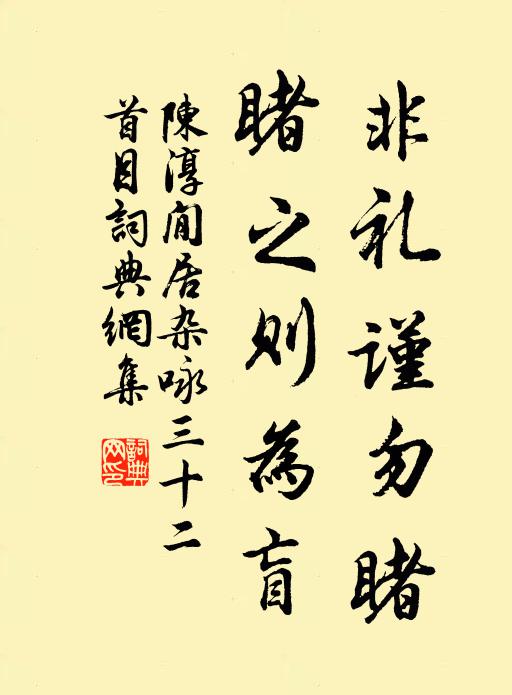 非礼謹勿睹
睹之则為盲
陳淳閒居杂咏三十二
首目詞典網集
詞典
网印